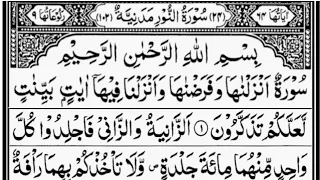 اٰیَاتُهَا ٦٤ (٢٤) سُوْرَةُ النُّوْرِ مَدَنِیَّةٌ (١٠٢) رُكُوْعَاتُهَا ٩
بِسْمِ اللهِ الرَّحْمٰنِ الرَّحِیْمِ
سُوْرَةٌ اَنْزَلْنٰهَا وَفَرَضْنٰهَا وَاَنْزَلْنَا فِیْهَاۤ اٰیٰتٍۭ بَیِّنٰتٍ
لَّعَلَّكُمْ تَذَكَّرُوْنَ ① اَلزَّانِیَةُ وَالزَّانِیْ فَاجْلِدُوْا كُلَّ
وَاحِدٍ مِّنْهُمَا مِائَةَ جَلْدَةٍ ۪ وَّلَا تَاْخُذْكُمْ بِهِمَا رَاْفَةٌ